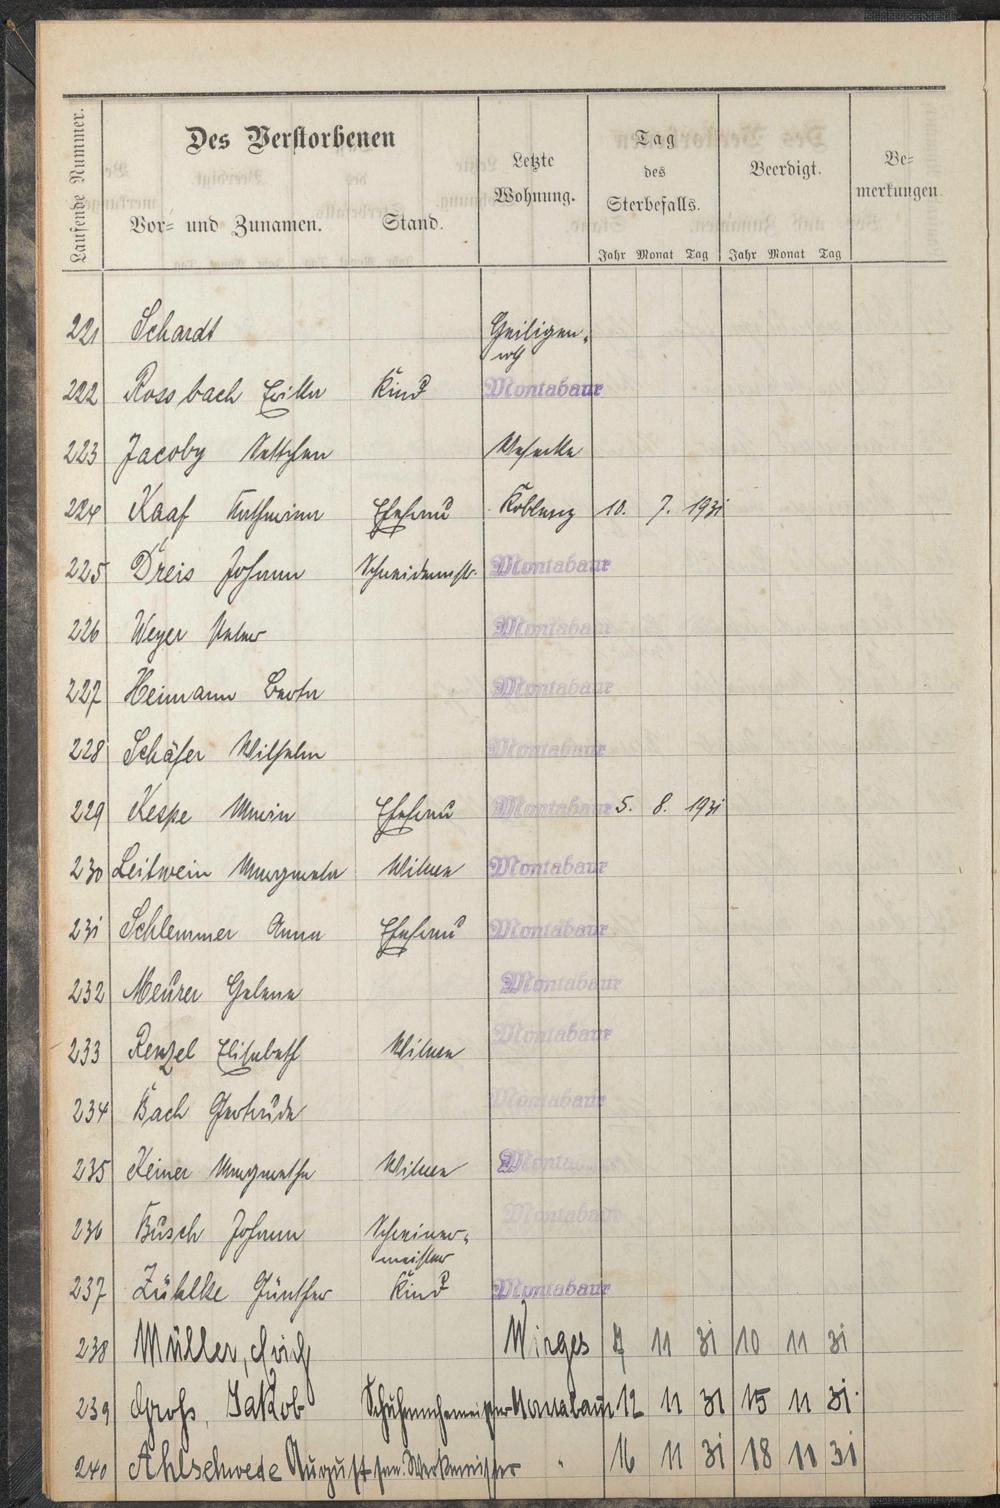 Laufende Nummer.
Des Verstorbenen
Vor- und Zunamen. Stand.
Letzte Wohnung.
Tag des Sterbefalls.
Jahr Monat Tag
Beerdigt.
Jahr Monat Tag
Bemerkungen.
221 Schardt
222 Rossbach Erika Kind Montabaur
223 Jacoby Nettchen
224 Kaaf Katharina Ehefrau Koblenz 10. 7. 1931
225 Dreis Johann Schneidermstr. Montabaur
226 Weyer Peter Montabaur
227 Heimann Berta Montabaur
228 Schäfer Wilhelm Montabaur
229 Kespe Maria Ehefrau Montabaur 5. 8. 1931
230 Leitwein Margareta Witwe Montabaur
231 Schlemmer Anna Ehefrau Montabaur
232 Meurer Helene Montabaur
233 Renzel Elisabeth Witwe Montabaur
234 Bach Gertrude Montabaur
235 Keiner Margarethe Witwe Montabaur
236 Busch Johann Schreiner- Montabaur
meister
237 Zühlke Günther Kind Montabaur
238 Müller, Wirges 7 11 31 10 11 31
239 Grohs, Jakob Schuhmachermeister Montabaur 12 11 31 15 11 31.
240 Ahlschwede August sen. Werkmeister " 16 11 31 18 11 31